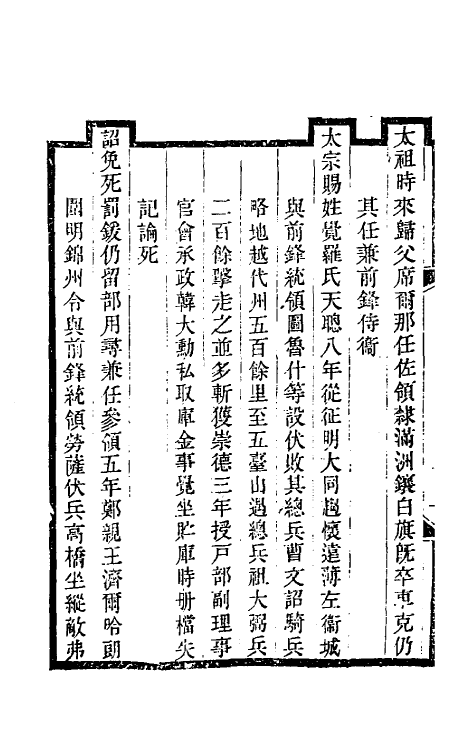 太祖時來歸父席爾那任佐領隸滿洲鑲白旗旣卒車克仍
其任兼前鋒侍衞
太宗賜姓覺羅氏天聰八年從征明大同趨懷遠薄左衞城
與前鋒統領圖魯什等設伏敗其總兵曹文詔騎兵
略地越代州五百餘里至五臺山遇總兵祖大弼兵
二百餘擊走之並多斬獲崇德三年授戸部副理事
官會承政韓大勳私取庫金事覺坐貯庫時册檔失
記論死
詔免死罰鍰仍留部用尋兼任參領五年鄭親王濟爾哈朗
圍明錦州令與前鋒統領勞薩伏兵高橋坐縱敵弗